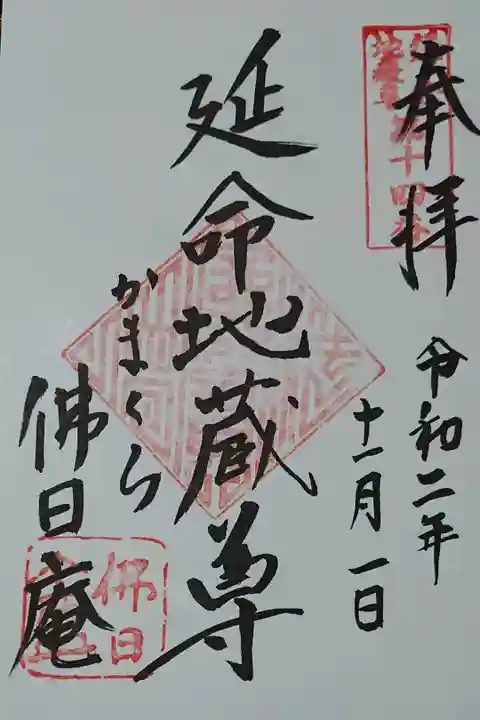 奉拝
令和二年
十一月一日
延命地蔵尊
かまくら
佛日庵
佛日